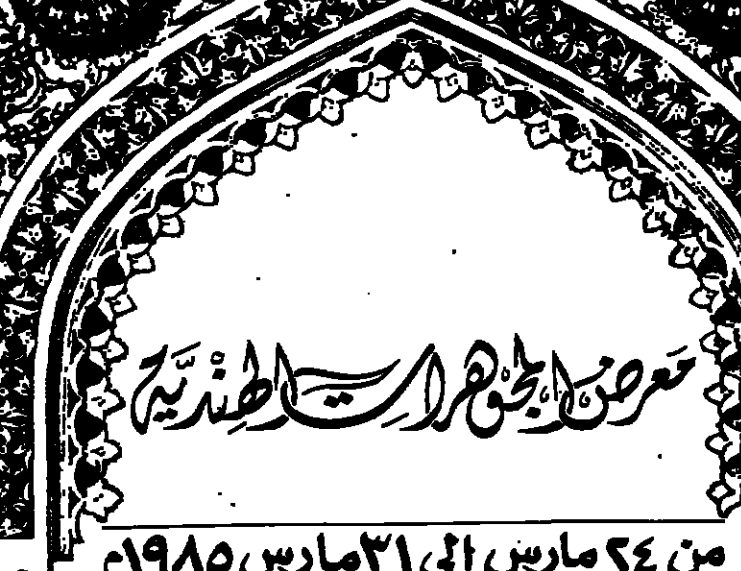 معرض المجوهرات الهندية
من ٢٤ مارس الى ٣١ مارس ١٩٨٥م